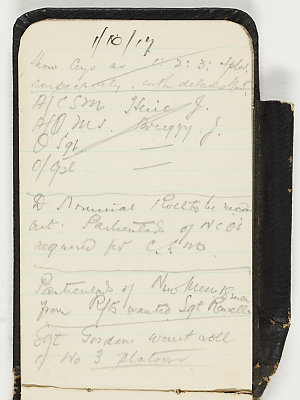 1/10/17
how Coys as 1: 2: 3: 4 plat
respectively. with
A/CSM Heino J.
A/QMS. Bruggy J.
O Sgt —
O/Cpl. —
D Nominal Roll to be made
out: Particulars of NCO's
required for C.S.M.
Particulars of New Men
from Rfts wanted Sgt
Sgt Gordon want roll
of No 3 platoon